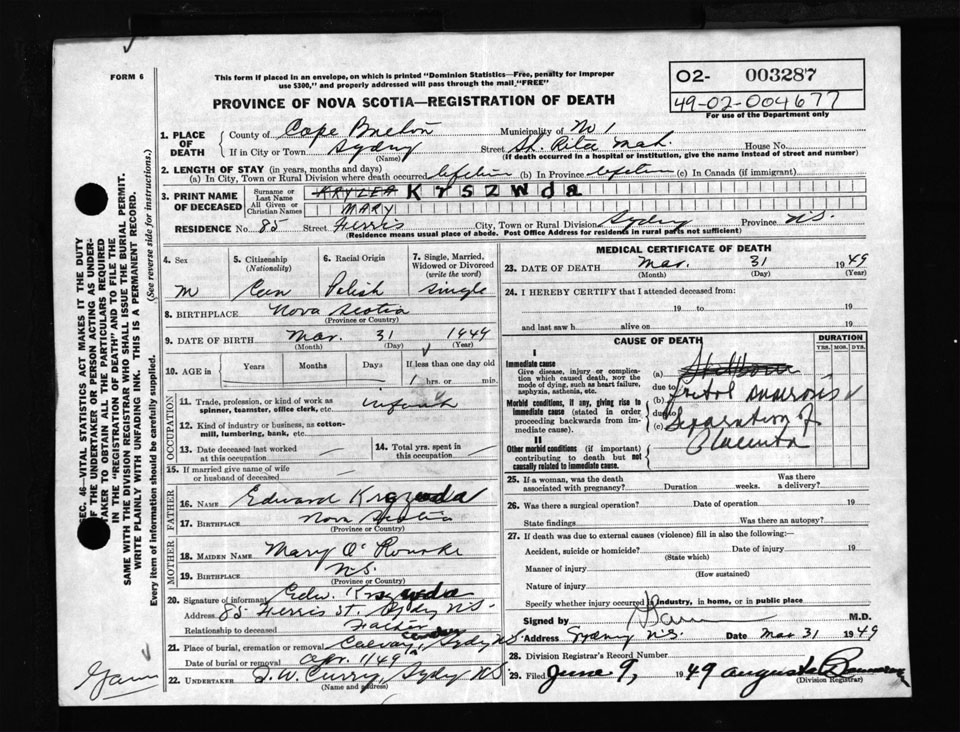 FORM 6
This form if placed in an envelope, on which is printed "Dominion Statistics—Free, penalty for improper
use $300," and properly addressed will pass through the mail "FREE"
02- 003287
49-02-004677
For use of the Department only
PROVINCE OF NOVA SCOTIA—REGISTRATION OF DEATH
1. PLACE OF DEATH
County of Cape Breton Municipality of No 1
If in City or Town Sydney Street St. Rita House No.
(Name) (If death occurred in a hospital or institution, give the name instead of street and number)
2. LENGTH OF STAY (in years, months and days)
(a) In City, Town or Rural Division where death occurred lifetime (b) In Province lifetime (c) In Canada (if immigrant)
3. PRINT NAME OF DECEASED
Surname or Last Name Krszwda
All Given or Christian Names MARY
RESIDENCE No. 85 Street Ferris City, Town or Rural Division Sydney Province N.S.
(Residence means usual place of abode. Post Office Address for residents in rural parts not sufficient)
4. Sex
M
5. Citizenship
(Nationality)
Can
6. Racial Origin
Polish
7. Single, Married, Widowed or Divorced
(write the word)
Single
8. BIRTHPLACE Nova Scotia
(Province or Country)
9. DATE OF BIRTH Mar. 31 1949
(Month) (Day) (Year)
10. AGE in Years Months Days If less than one day old
1 hrs. or min.
OCCUPATION
11. Trade, profession or kind of work as spinner, teamster, office clerk, etc. infant
12. Kind of industry or business, as cotton-mill, lumbering, bank, etc.
13. Date deceased last worked at this occupation
14. Total yrs. spent in this occupation
15. If married give name of wife or husband of deceased
FATHER
16. NAME Edward Krszwda
17. BIRTHPLACE Nova Scotia
(Province or Country)
MOTHER
18. MAIDEN NAME Mary O'Rourke
19. BIRTHPLACE N.S.
(Province or Country)
20. Signature of informant Edw. Krszwda
Address 85 Ferris St. Sydney N.S.
Relationship to deceased Father
21. Place of burial, cremation or removal Calvary Cemetery Sydney N.S.
Date of burial or removal Apr. 1/49
22. UNDERTAKER J. W. Curry, Sydney N.S.
(Name and address)
MEDICAL CERTIFICATE OF DEATH
23. DATE OF DEATH Mar. 31 1949
(Month) (Day) (Year)
24. I HEREBY CERTIFY that I attended deceased from:
19 to 19
and last saw h alive on 19
CAUSE OF DEATH
DURATION
YRS. MOS. DYS.
I
Immediate cause
Give disease, injury or complication which caused death, NOT the mode of dying, such as heart failure, asphyxia, asthenia, etc.
(a) Stillborn
due to
Morbid conditions, if any, giving rise to immediate cause (stated in order proceeding backwards from immediate cause).
(b)
due to
(c) Separation of
Placenta
II
Other morbid conditions (if important) contributing to death but not causally related to immediate cause.
25. If a woman, was the death associated with pregnancy? Duration weeks. Was there a delivery?
26. Was there a surgical operation? Date of operation 19
State findings Was there an autopsy?
27. If death was due to external causes (violence) fill in also the following:—
Accident, suicide or homicide? Date of injury 19
(State which)
Manner of injury
(How sustained)
Nature of injury
Specify whether injury occurred in industry, in home, or in public place
Signed by M.D.
Address Sydney N.S. Date Mar 31 1949
28. Division Registrar's Record Number
29. Filed June 9, 1949
(Division Registrar)
SEC. 46—VITAL STATISTICS ACT MAKES IT THE DUTY
OF THE UNDERTAKER OR PERSON ACTING AS UNDER-
TAKER TO OBTAIN ALL THE PARTICULARS REQUIRED
IN THE "REGISTRATION OF DEATH" AND TO FILE THE
SAME WITH THE DIVISION REGISTRAR WHO SHALL ISSUE THE BURIAL PERMIT.
WRITE PLAINLY WITH UNFADING INK. THIS IS A PERMANENT RECORD.
Every item of information should be carefully supplied. (See reverse side for instructions.)